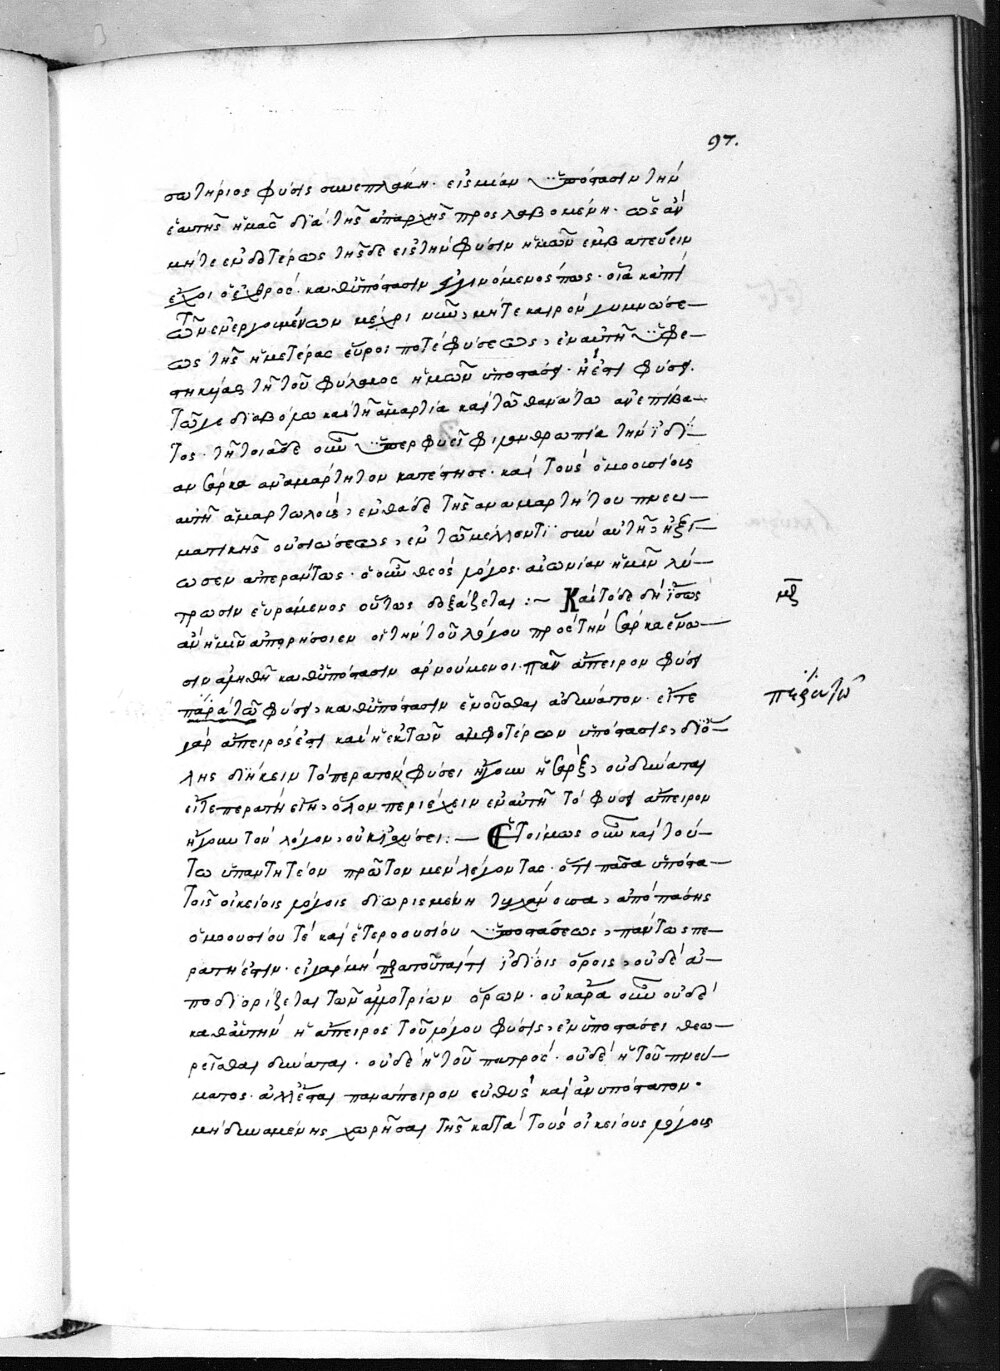 97.
σωτήριος φύσις συνεπλάκη· εἰς μίαν ὑπόστασιν τὴν
ἑαυτῆς ἡμᾶς διὰ τῆς ἀπαρχῆς προσλαβομένη· ὡς ἂν
μήτε ἐνδοτέρως τῆσδε εἰς τὴν φύσιν ἡμῶν ἐμβατεύειν
ἔχοι ὁ ἐχθρὸς· καθ' ὑπόστασιν γινόμενος πως· οἷα κἀπὶ
τῶν ἐνεργουμένων μέχρι νῦν, μήτε καιρὸν γυμνώσε—
ως τῆς ἡμετέρας εὕροι ποτὲ φύσεως, ἐν αὐτῇ ὑφε—
στηκυίας τῇ τοῦ φύλακος ἡμῶν ὑποστάσει· ἥ ἐστι φύσει
τῷ γε διαβόλῳ καὶ τῇ ἁμαρτίᾳ καὶ τῷ θανάτῳ ἀνεπίβα—
τος· τῇ τοιᾷδε οὖν ὑπερφυεῖ φιλανθρωπίᾳ τὴν ἰδί—
αν σάρκα ἀναμάρτητον κατέστησε· καὶ τοὺς ὁμοουσίους
αὐτῇ ἁμαρτωλοὺς, ἐνθάδε τῆς ἀναμαρτήτου πνευ—
ματικῆς οὐσιώσεως, ἐν τῷ μέλλοντι σὺν αὐτῇ, ἠξί—
ωσεν ἀπεράντως· ὁ οὖν θεὸς λόγος αἰωνίαν ἡμῖν λύ—
τρωσιν εὑράμενος οὕτως δοξάζεται :— Καὶ τόδε δὴ ἴσως
ἂν ἡμῖν ἀπορήσοιεν οἱ τὴν τοῦ λόγου πρὸς τὴν σάρκα ἕνω—
σιν ἀληθῆ καθ' ὑπόστασιν ἀρνούμενοι· πᾶν ἄπειρον φύσει
παρὰ τῷ φύσει, καθ' ὑπόστασιν ἑνοῦσθαι ἀδύνατον· εἴτε
γὰρ ἄπειρός ἐστι καὶ ἡ ἐκ τῶν ἀμφοτέρων ὑπόστασις, δι' ὅ—
λης διήκειν τὸ περατὸν φύσει ἤγουν ἡ σὰρξ, οὐ δύναται
εἴτε περατὴ εἴη, ὅλον περιέχειν ἐν αὐτῇ τὸ φύσει ἄπειρον
ἤγουν τὸν λόγον, οὐκ ἰσχύσει :— Ἑτοίμως οὖν καὶ τού—
τω ὑπαντητέον πρῶτον μὲν λέγοντας· ὅτι πᾶσα ὑπόστα—
τοῖς οἰκείοις λόγοις διωρισμένη τυγχάνουσα, ἀπὸ πάσης
ὁμοουσίου τὲ καὶ ἑτεροουσίου ὑποστάσεως, πάντως πε—
ρατή ἐστιν· εἰ γὰρ μὴ περατοῦται τι ἰδίοις ὅροις, οὐδὲ ἀ—
ποδιορίζεται τῶν ἀλλοτρίων ὅρων· οὐκ ἄρα οὖν οὐδὲ
καθ' αὑτὴν ἡ ἄπειρος τοῦ λόγου φύσις, ἐν ὑποστάσει θεω—
ρεῖσθαι δύναται· οὐδὲ ἡ τοῦ πατρὸς· οὐδὲ ἡ τοῦ πνεύ—
ματος· ἀλλ' ἔσται πανάπειρον εὐθὺς καὶ ἀνυπόστατον·
μὴ δυναμένης χωρῆσαι τῆς κατὰ τοὺς οἰκείους λόγους